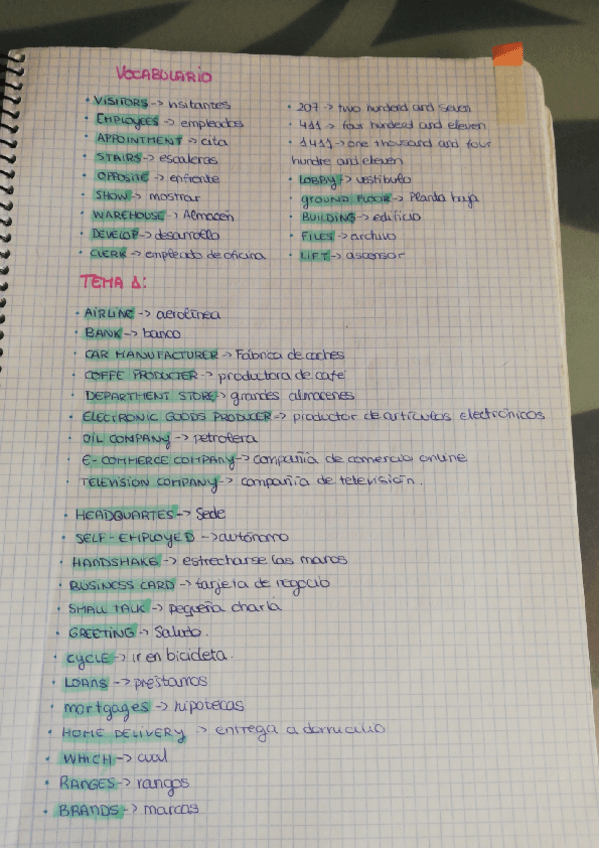 VOCABULARIO
· VISITORS -> visitantes
· EMPLOYEES -> empleados
· APPOINTMENT -> cita
· STAIRS -> escaleras
· OPPOSITE -> enfrente
· SHOW -> mostrar
· WAREHOUSE -> Almacén
· DEVELOP -> desarrollo
· CLERK -> empleado de oficina
· 207 -> two hunderd and seven
· 411 -> four hunderd and eleven
· 1411 -> one thousand and four
hundre and eleven
· LOBBY -> vestíbulo
· GROUND FLOOR -> Planta baja
· BUILDING -> edificio
· FILES -> archivo
· LIFT -> ascensor
TEMA 1:
· AIRLINE -> aerolínea
· BANK -> banco
· CAR MANUFACTURER -> Fábrica de coches
· COFFE PRODUCTER -> productora de café
· DEPARTMENT STORE -> grandes almacenes
· ELECTRONIC GOODS PRODUCER -> productor de artículos electrónicos
· OIL COMPANY -> petrolera
· E-COMMERCE COMPANY -> compañía de comercio online
· TELEVISION COMPANY -> compañía de televisión.
· HEADQUARTES -> Sede
· SELF-EMPLOYED -> autónomo
· HANDSHAKE -> estrecharse las manos
· BUSINESS CARD -> tarjeta de negocio
· SMALL TALK -> pequeña charla
· GREETING -> Saludo.
· CYCLE -> ir en bicicleta.
· LOANS -> prestamos
· mortgages -> hipotecas
· HOME DELIVERY -> entrega a domicilio
· WHICH -> cual
· RANGES -> rangos
· BRANDS -> marcas